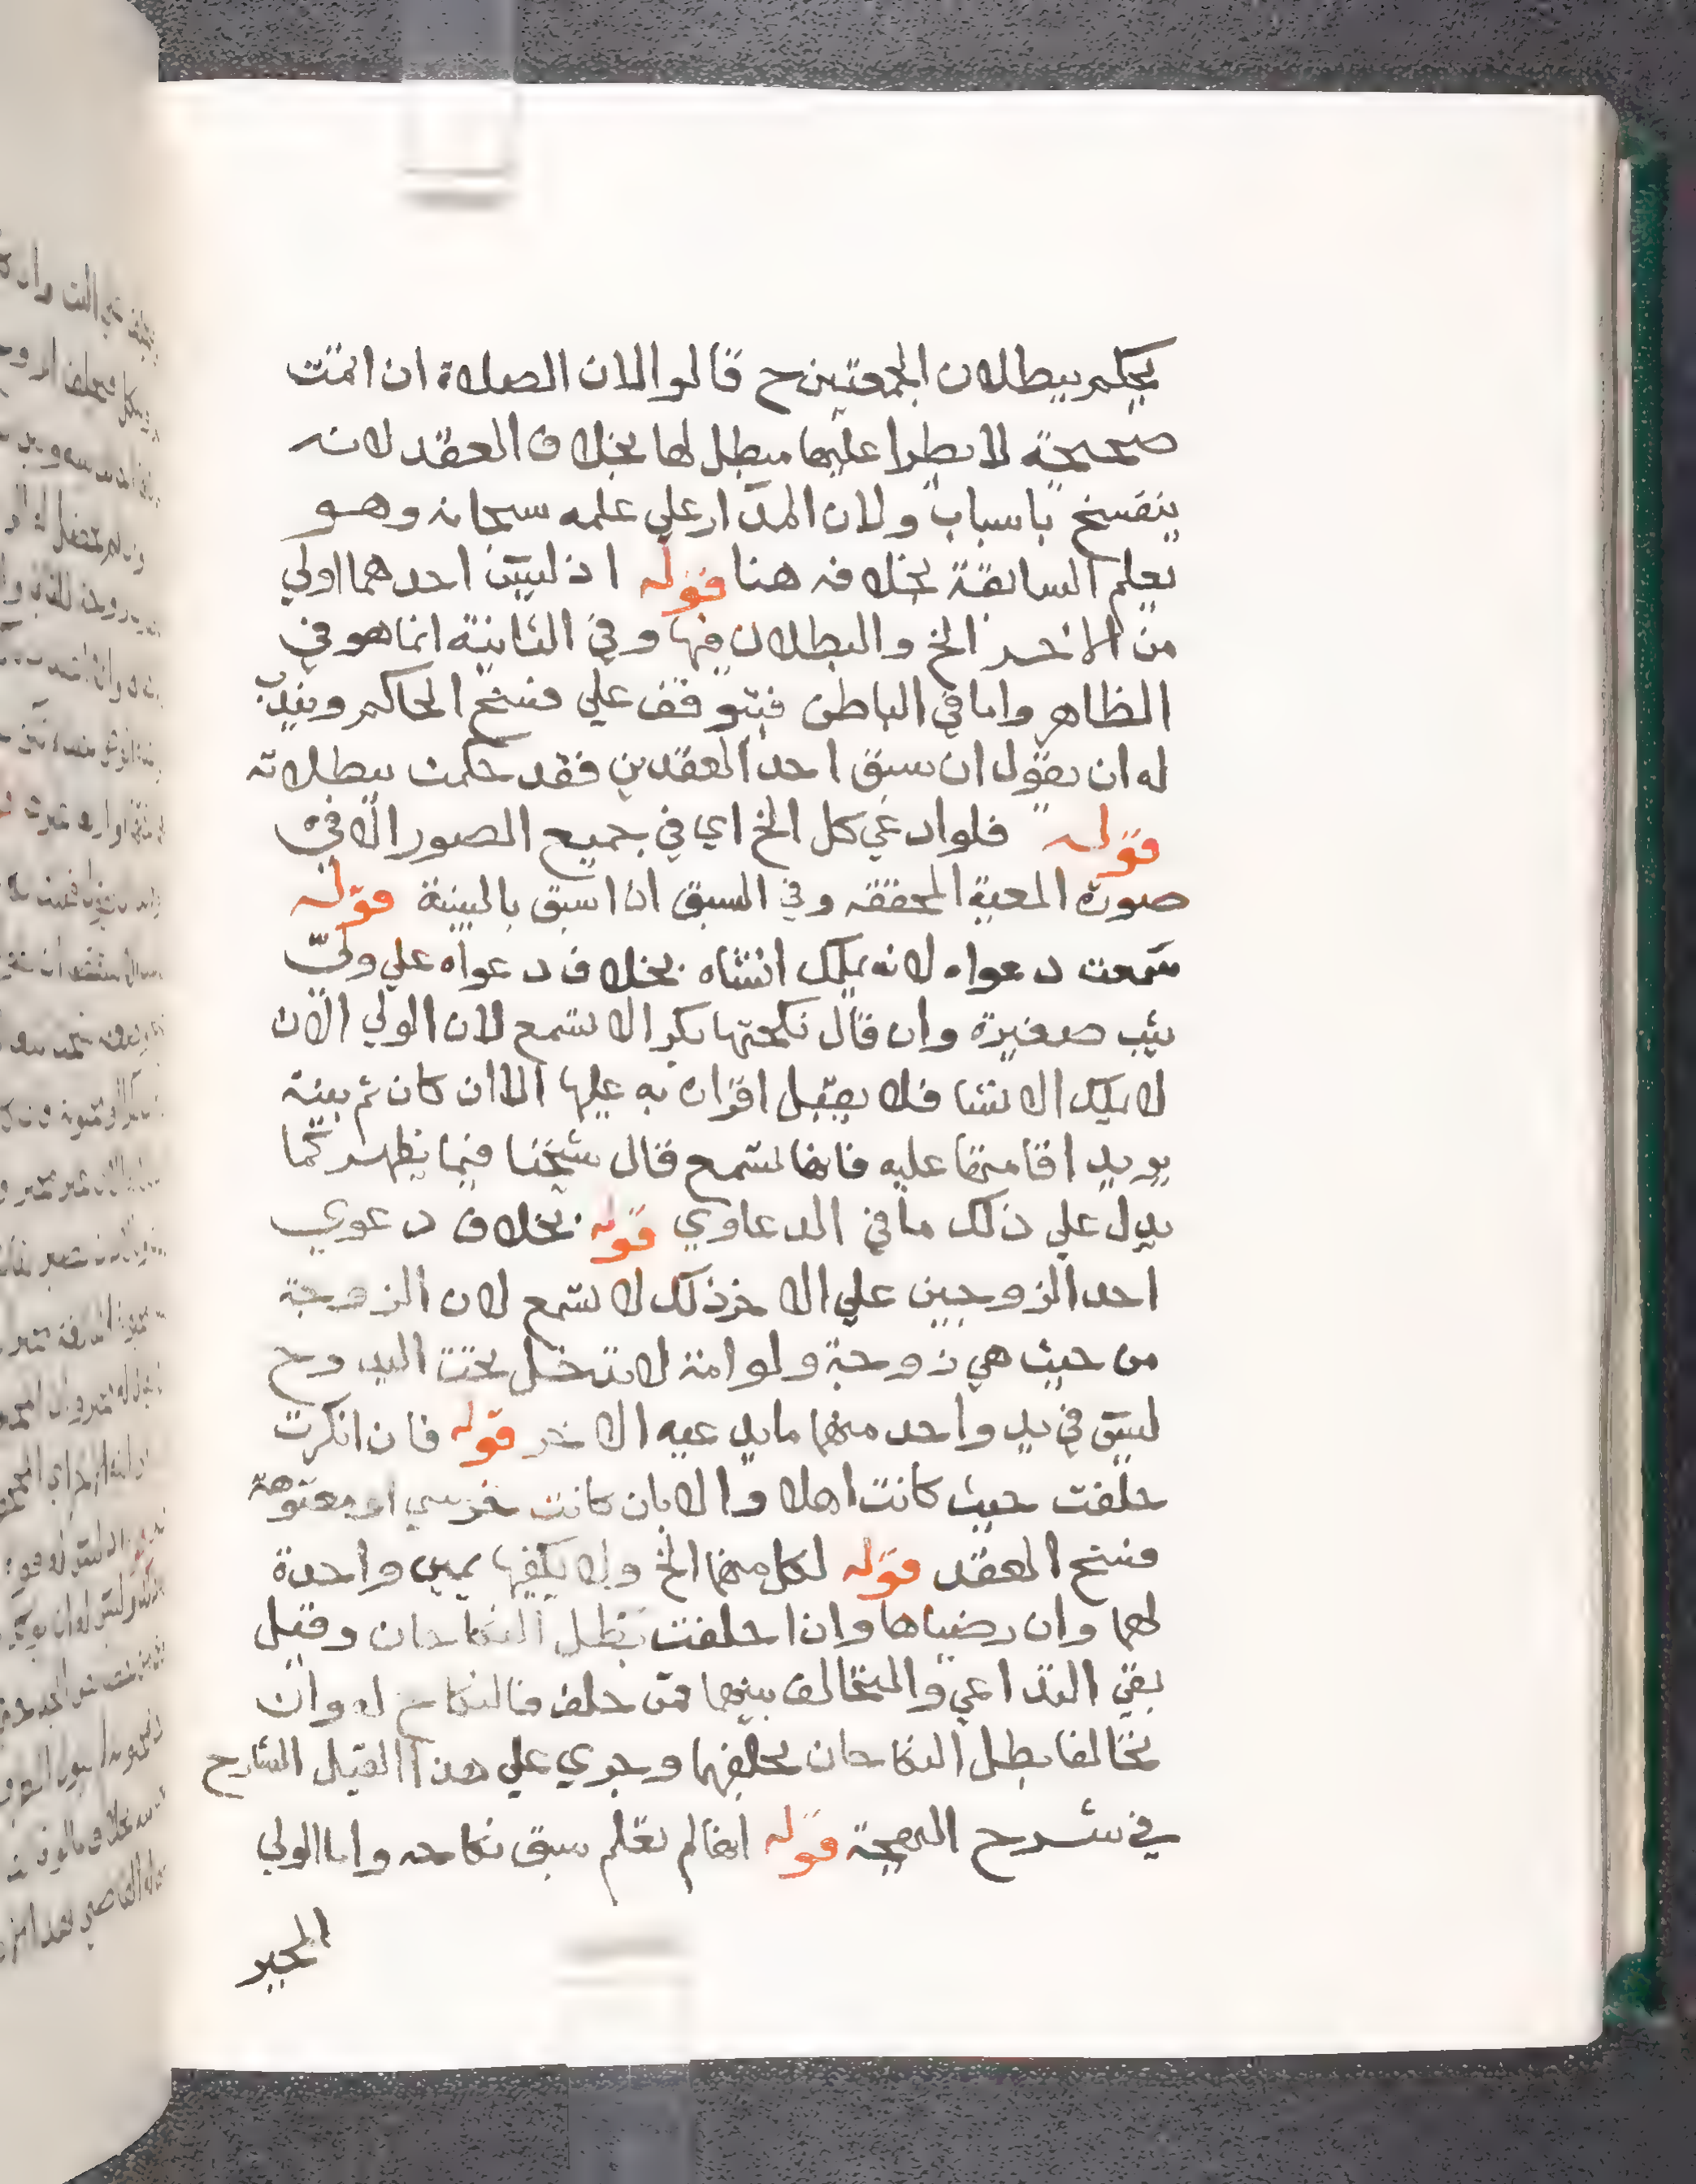 يحكم ببطلان الجمعتين ح قالوا لان الصلاة ان اتمت
صحيحة لا يطرا عليها مبطل لها بخلاف العقد لانه
ينفسخ باسباب ولان المدار علي علمه سبحانه وهو
يعلم السابقة بخلافه هنا قوله اذ ليس احدهما اولي
من الاخر الخ والبطلان فيها وفي الثانية انما هو في
الظاهر واما في الباطن فيتوقف علي فسخ الحاكم ويندب
له ان يقول ان سبق احد العقدين فقد حكمت ببطلانه
قوله فلو ادعي كل الخ اي في جميع الصور الا في
صورة المعية المحققه وفي السبق اذا سبق بالبينة قوله
سمعت دعواه لانه يملك انشاه بخلاف دعواه علي ولي
ثيب صغيرة وان قال نكحتها بكرا لا تسمع لان الولي الان
لا يملك الانشا فلا يقبل اقراره به عليها الا ان كان ثم بينة
يريد اقامتها عليه فانها تسمع قال شيخنا فيما يظهر كما
يدل علي ذلك ما في الدعاوي قوله بخلاف دعوي
احد الزوجين علي الاخر ذلك لا تسمع لان الزوجة
من حيث هي زوجة ولو امة لا تدخل تحت اليد وح
ليس في يد واحد منهما ما يدعيه الاخر قوله فان انكرت
حلفت حيث كانت اهلا والا بان كانت خرسي او معتوهة
فسخ العقد قوله لكل منهما الخ ولا يكفيها يمين واحدة
لهما وان رضياها واذا حلفت بطل النكاحان وقيل
بقي التداعي والتحالف بينهما فمن حلف فالنكاح له وان
تحالفا بطل النكاحان بحلفهما وجري علي هذا القيل الشارح
في شرح البهجة قوله انها لم تعلم سبق نكاحه واما الولي
المجبر